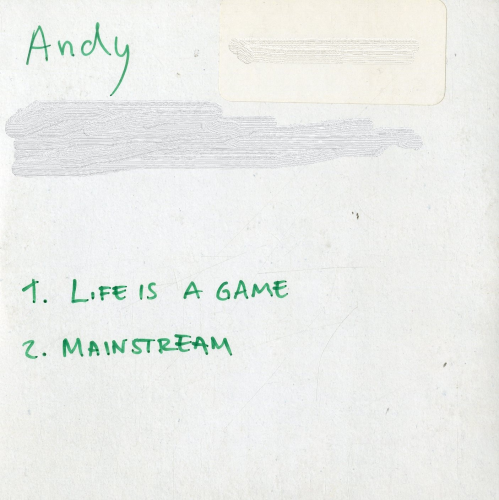 Andy
1. LIFE IS A GAME
2. MAINSTREAM